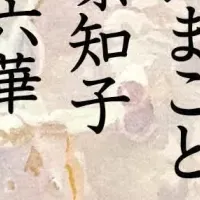 まこと
知子
六華